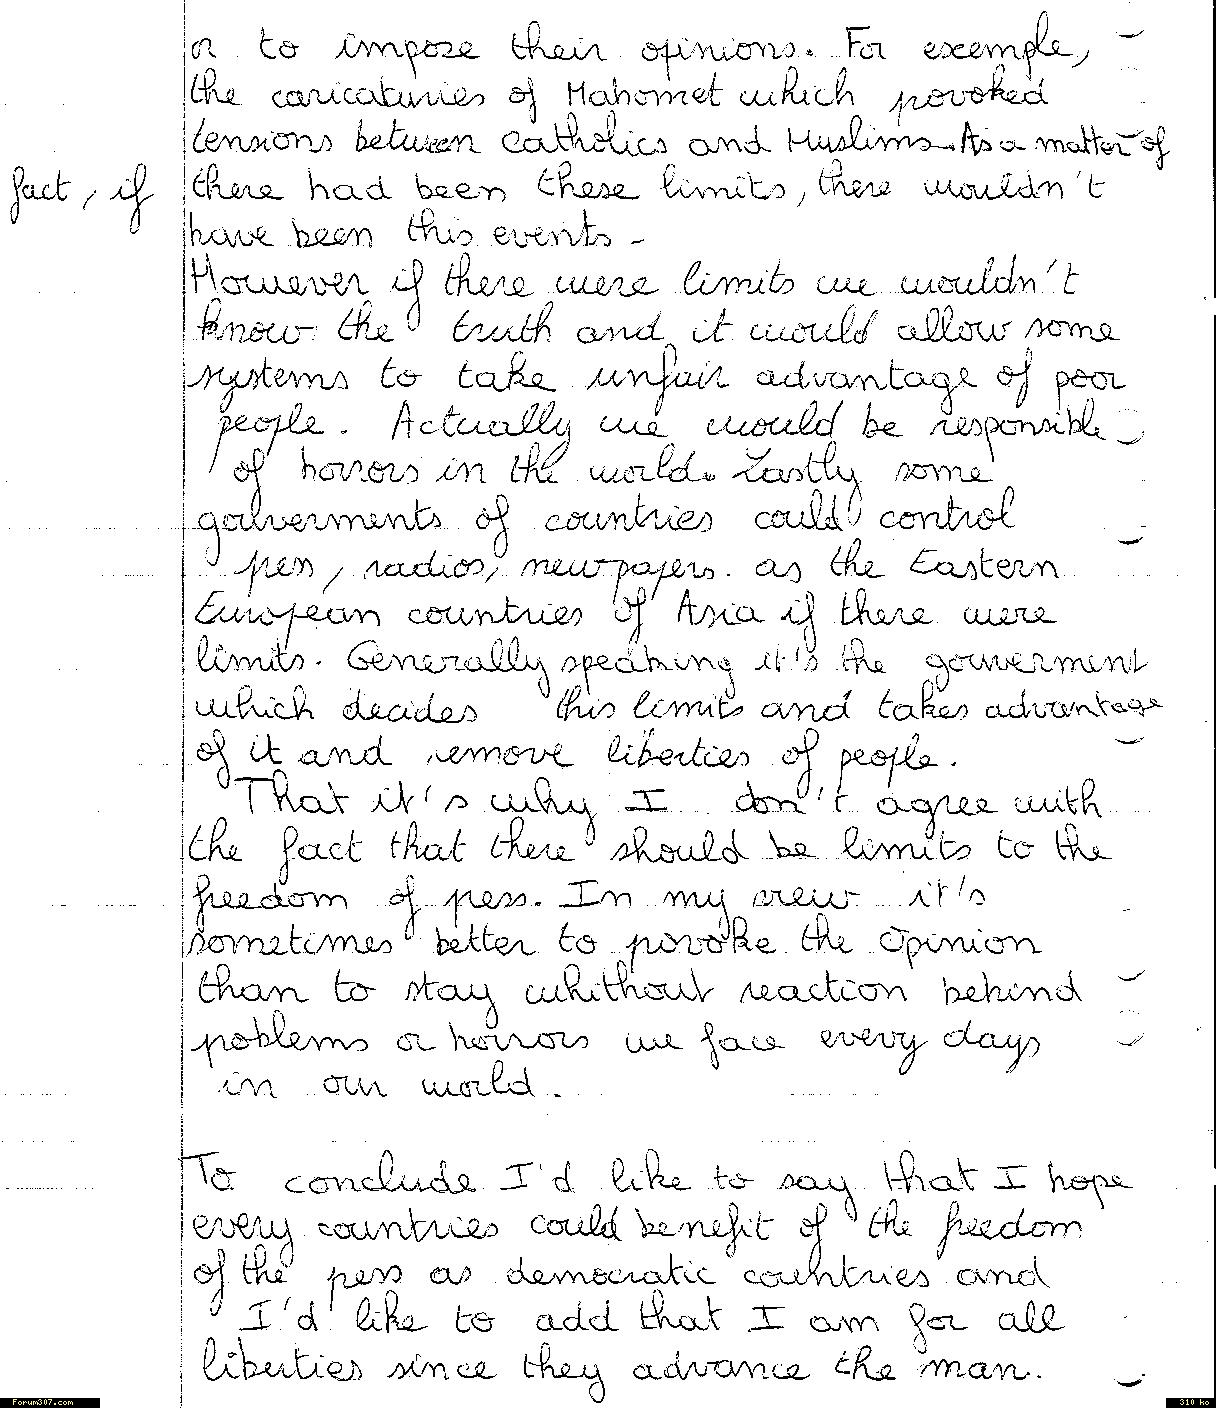 or to impose their opinions. For exemple,
the caricaturies of Mahomet which povoked
tensions between catholics and Muslims. As a matter of
fact, if there had been these limits, there wouldn't
have been this events.
However if there were limits we wouldn't
know the truth and it would allow some
systems to take unfair advantage of poor
people. Actually we would be responsible
of horrors in the world. Lastly some
gouverments of countries could control
pess, radios, newpapers. as the Eastern
European countries of Asia if there were
limits. Generally speaking it's the gouverment
which decides this limits and takes advantage
of it and remove liberties of people.
That it's why I don't agree with
the fact that there should be limits to the
freedom of pess. In my view it's
sometimes better to povoke the opinion
than to stay whithout reaction behind
poblems or horrors we face every days
in our world.
To conclude I'd like to say that I hope
every countries could benefit of the freedom
of the pess as democratic countries and
I'd like to add that I am for all
liberties since they advance the man.
Forum307.com
310 ko